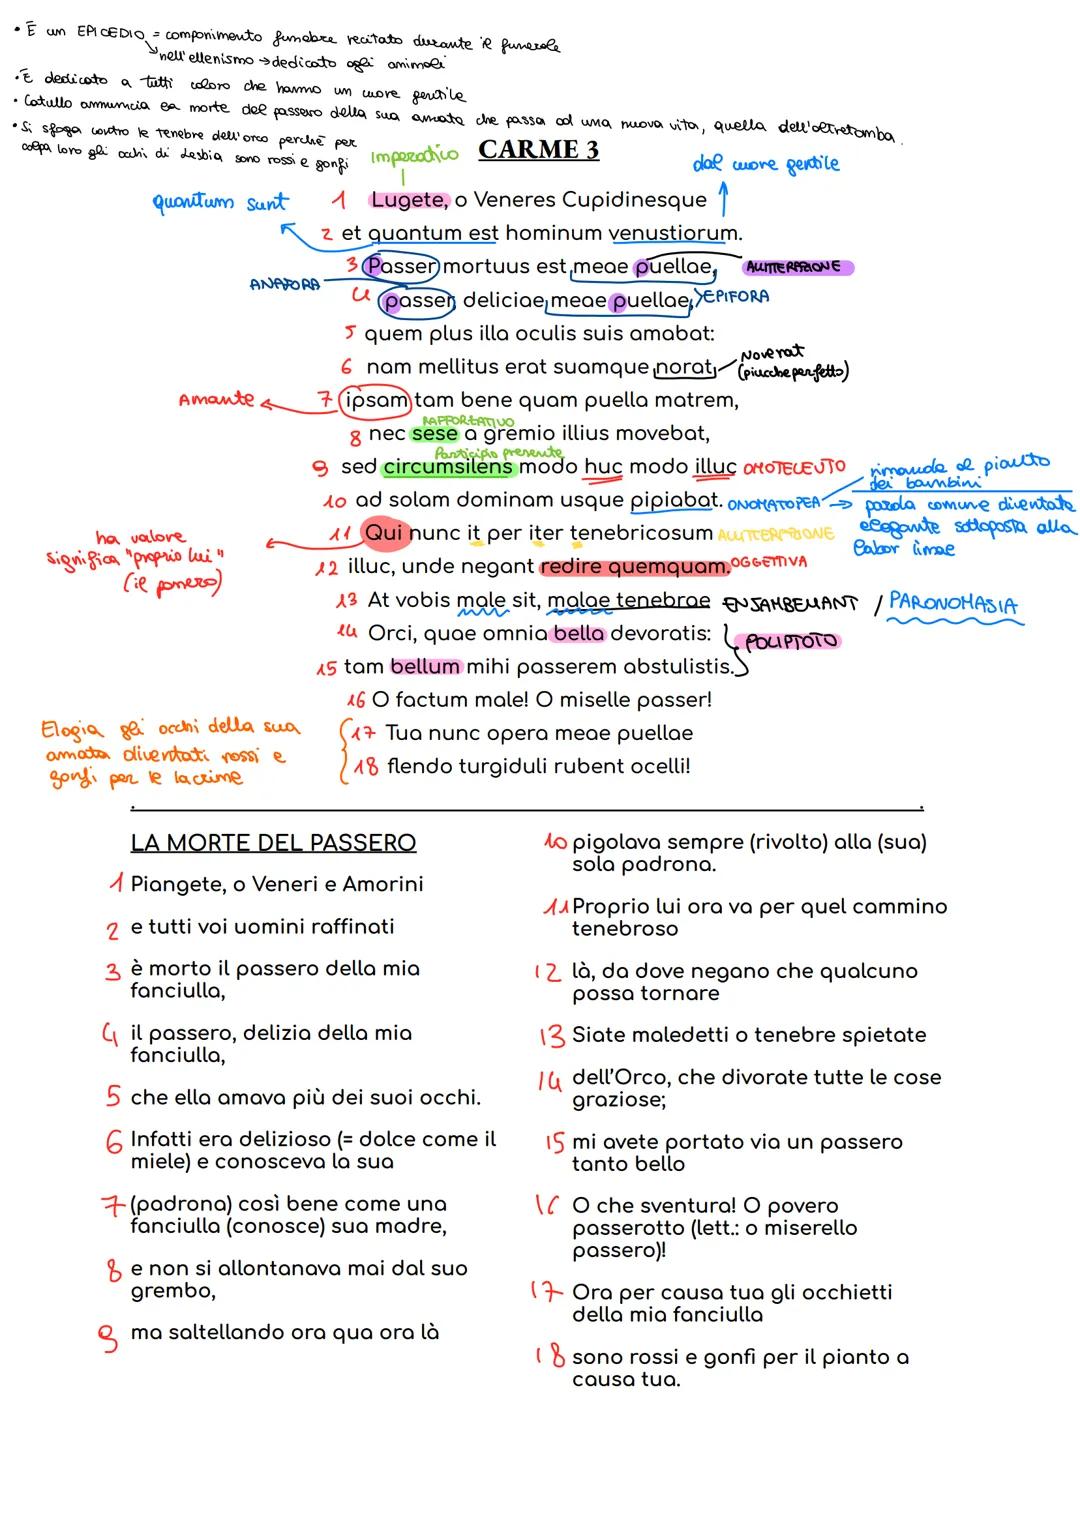 • È un EPICEDIO = componimento funebre recitato durante il funerale
nell'ellenismo → dedicato agli animali
• È dedicato a tutti coloro che hanno un cuore gentile
• Catullo annuncia la morte del passero della sua amata che passa ad una nuova vita, quella dell'oltretomba.
• Si sfoga contro le tenebre dell'orco perchè per
colpa loro gli occhi di Lesbia sono rossi e gonfi
Imperativo
CARME 3
dal cuore gentile
quantum sunt
1 Lugete, o Veneres Cupidinesque
2 et quantum est hominum venustiorum.
3 Passer mortuus est meae puellae, ALLITTERAZIONE
ANAFORA
4 passer, deliciae meae puellae, EPIFORA
5 quem plus illa oculis suis amabat:
6 nam mellitus erat suamque norat Noverat
(piuccheperfetto)
Amante
7 ipsam tam bene quam puella matrem,
RAFFORZATIVO
8 nec sese a gremio illius movebat,
Participio presente
9 sed circumsilens modo huc modo illuc OMOTELEUTO
rimanda al pianto
dei bambini
10 ad solam dominam usque pipiabat. ONOMATOPEA → parola comune diventata
elegante sottoposta alla
labor limae
11 Qui nunc it per iter tenebricosum ALLITTERAZIONE
ha valore
significa "proprio lui"
(il passero)
12 illuc, unde negant redire quemquam. OGGETTIVA
13 At vobis male sit, malae tenebrae ENJAMBEMANT / PARONOMASIA
14 Orci, quae omnia bella devoratis:
POLIPTOTO
15 tam bellum mihi passerem abstulistis.
16 O factum male! O miselle passer!
Elogia gli occhi della sua
amata diventati rossi e
gonfi per le lacrime
17 Tua nunc opera meae puellae
18 flendo turgiduli rubent ocelli!
LA MORTE DEL PASSERO
1 Piangete, o Veneri e Amorini
2 e tutti voi uomini raffinati
3 è morto il passero della mia
fanciulla,
4 il passero, delizia della mia
fanciulla,
5 che ella amava più dei suoi occhi.
6 Infatti era delizioso (= dolce come il
miele) e conosceva la sua
7 (padrona) così bene come una
fanciulla (conosce) sua madre,
8 e non si allontanava mai dal suo
grembo,
9 ma saltellando ora qua ora là
10 pigolava sempre (rivolto) alla (sua)
sola padrona.
11 Proprio lui ora va per quel cammino
tenebroso
12 là, da dove negano che qualcuno
possa tornare
13 Siate maledetti o tenebre spietate
14 dell'Orco, che divorate tutte le cose
graziose;
15 mi avete portato via un passero
tanto bello
16 O che sventura! O povero
passerotto (lett.: o miserello
passero)!
17 Ora per causa tua gli occhietti
della mia fanciulla
18 sono rossi e gonfi per il pianto a
causa tua.